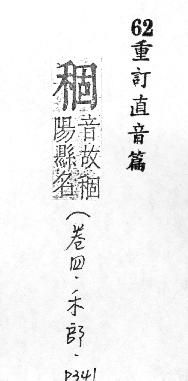 62重訂直音篇
稒音故稒陽縣名(卷四·禾部·P341